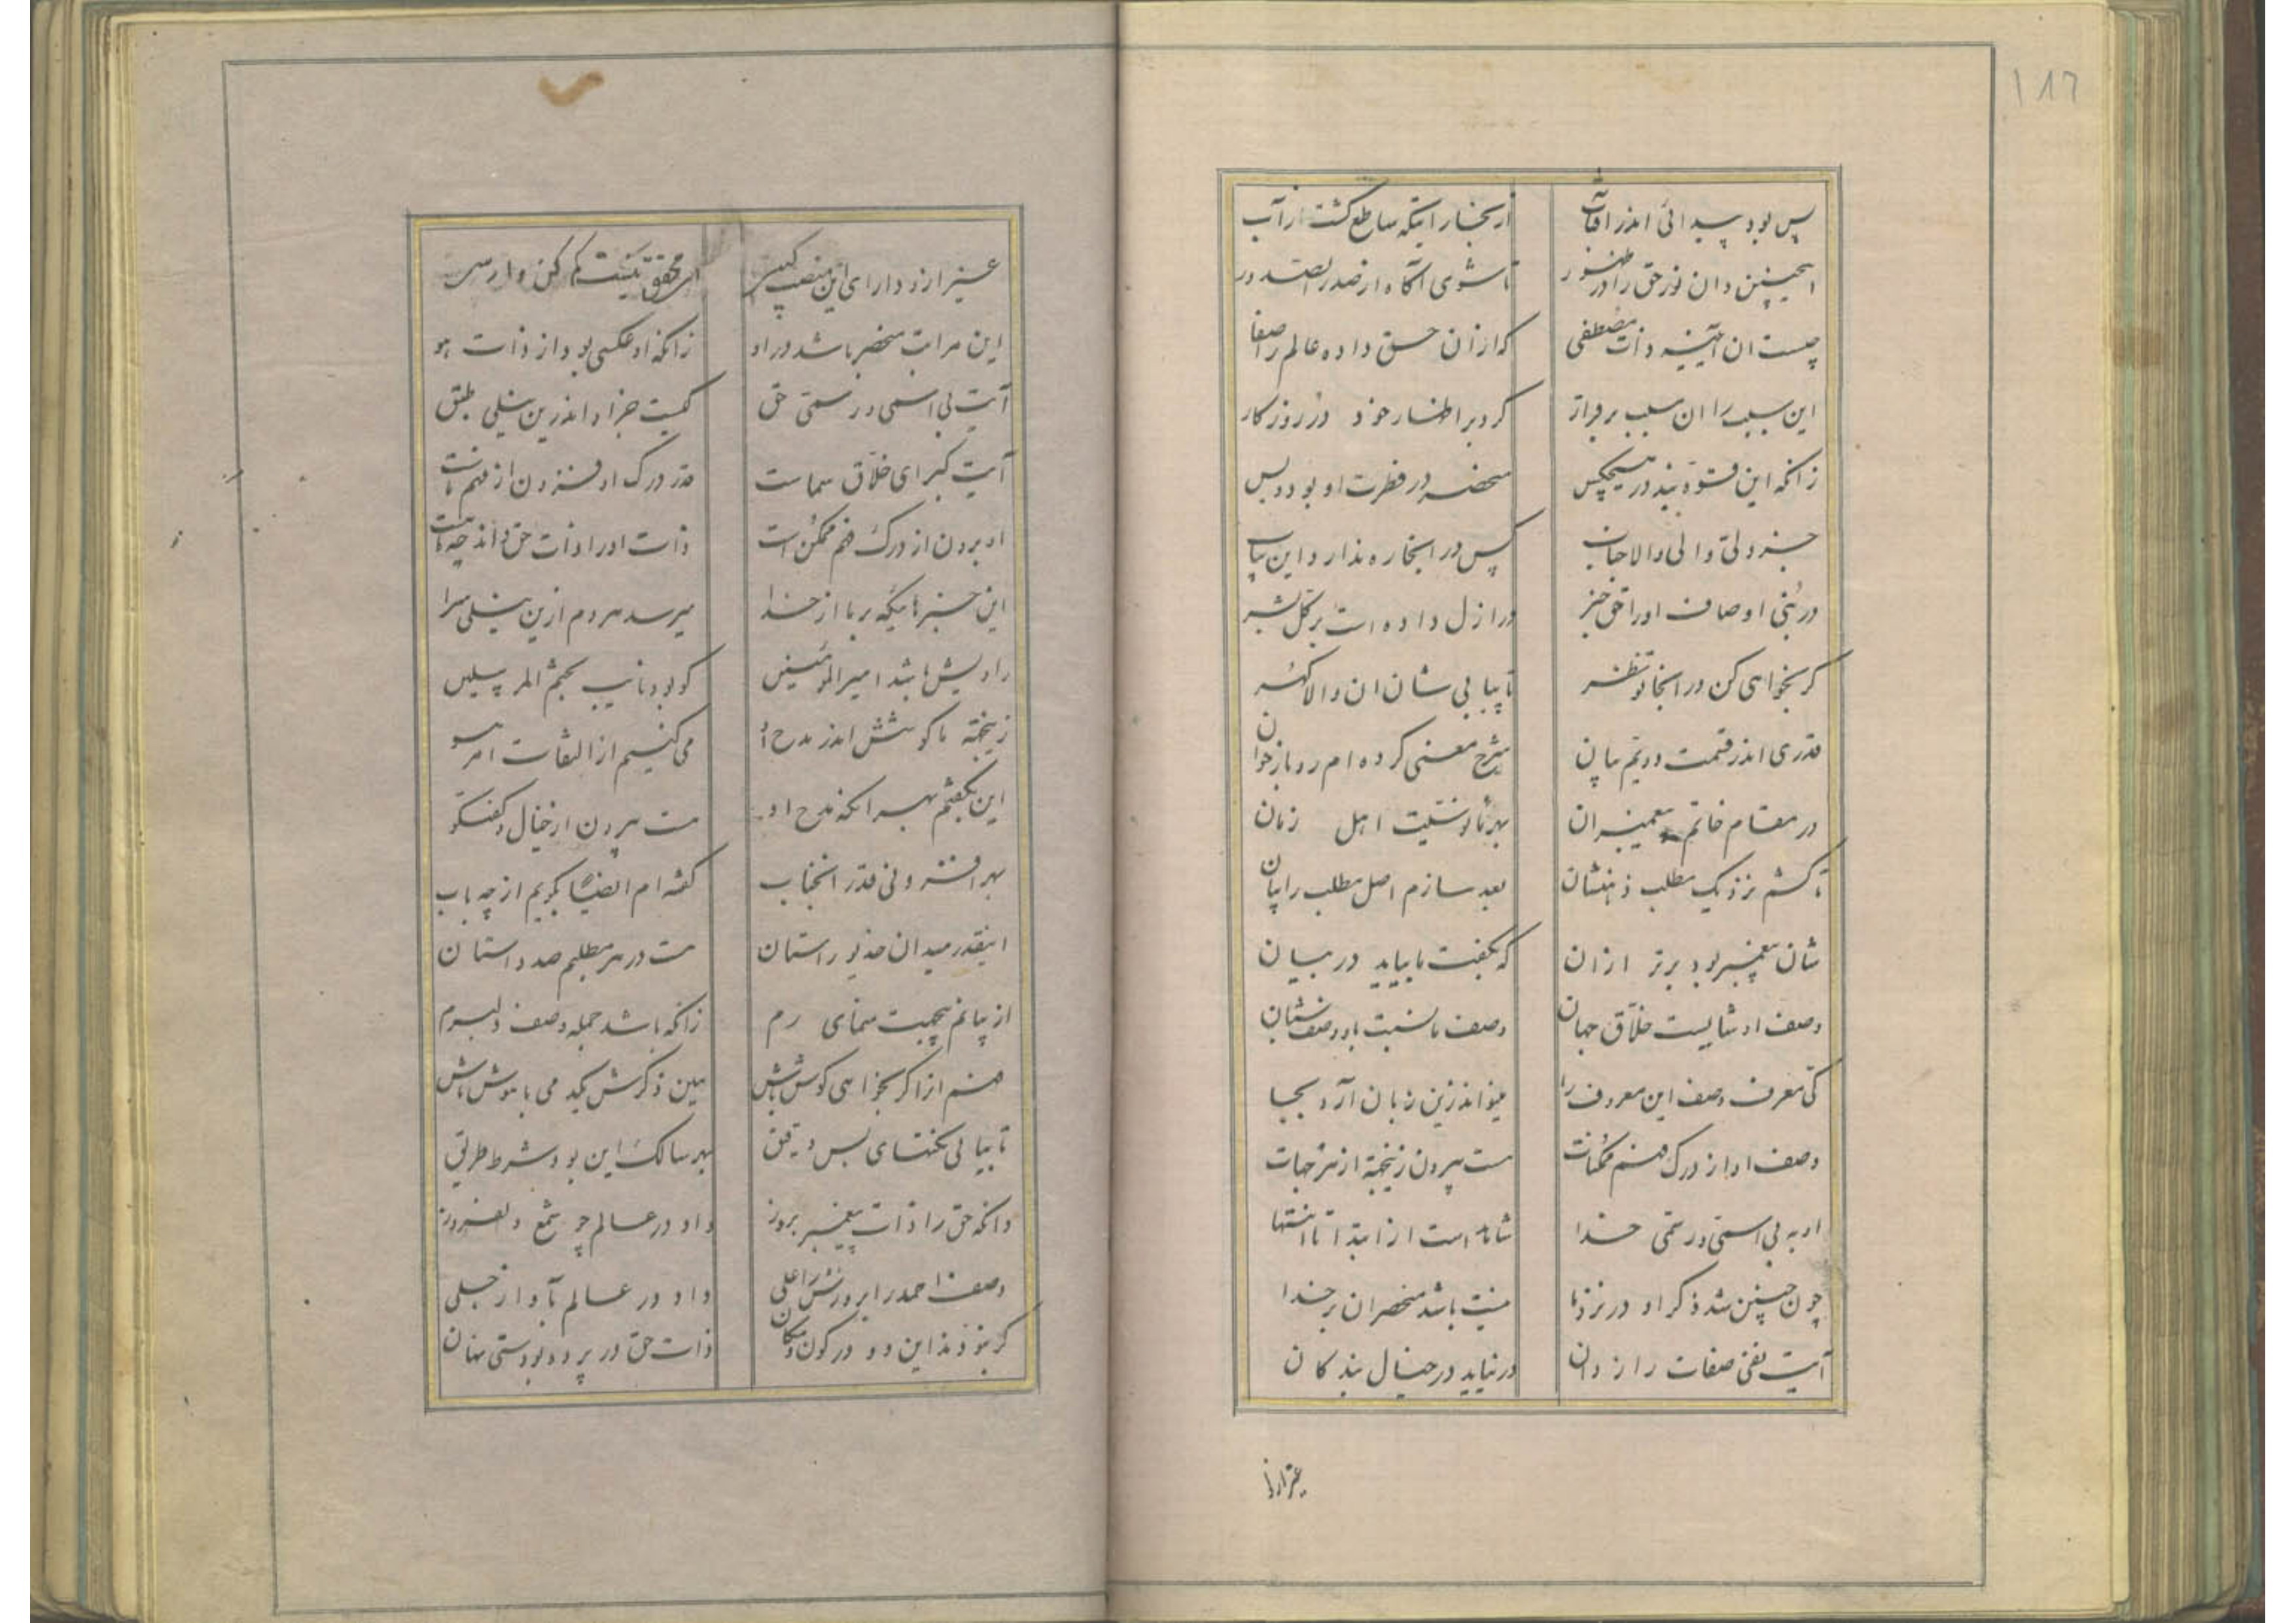 ۱۸۶
پس بود پیدائی اندر آفتاب از بخار اینکه ساطع گشت از آب
اینچنین دان نور حق را در ظهور تا شوی آگاه از صدر الصدور
چیست ان آئینه ذات مصطفی که ازان حق داده عالم را صفا
این سبب را ان سبب بر کرد بر اظهار خود در روزکار
زانکه این قوه نبد در هیچکس منحصر در فطرت او بود و بس
جز ولی والی والا جناب کس در اینجا ره ندارد این بیاب
در نبی اوصاف او را حق خبر در ازل داده است بر کل بشر
کر بخواهی کن در اینجا تو نظر تا بیابی شان ان والا کهر
قدری اندر قسمت دویم بیان شرح معنی کرده ام رو باز خوان
در مقام خاتم پیغمبران بهر اهل زمان
تا کشم نزدیک مطلب ذهنشان بعد سازم اصل مطلب را بیان
شان پیغمبر بود برتر ازان که بگفت ما بیاید در بیان
وصف او شایست خلاق جهان وصف ما نسبت باو وصف شان
کی معرف وصف این معروف را میتواند زین زبان آرد بجا
وصف او از درک فهم ممکنات هست بیرون زینجهة از هر جهات
او به بی اسمی و رسمی خدا شاهد است از ابتدا تا انتها
چون چنین شد ذکر او در نزد ما نیست باشد منحصر ان بر خدا
آیت نفی صفات راز دان در نیاید در خیال بندکان
غیر ازو
غیر ازو دارای این منصب کس ای محقق نیست کم کن وارسی
این مراتب منحصر باشد در او زانکه او عکسی بود از ذات هو
آیت بی اسمی و رسمی حق کیست جز او اندرین نیلی طبق
آیت کبرای خلاق سماست قدر درک او فزون از فهم ماست
او برون از درک فهم ممکن است ذات او را ذات حق داند
این خبرهائیکه بر ما از خدا میرسد هر دم ازین نیلی سرا
راویش باشد امیر المومنین کو بود نایب بختم المرسلین
زینجهة ما کوشش اندر مدح او می کنیم از التفات امر هو
این بگفتم بهر انکه مدح او هست بیرون از خیال و گفتگو
بهر افزونی قدر انجناب گفته ام ایضا بگویم از چه باب
اینقدر میدان خدیو راستان هست در هر مطلبم صد داستان
از بیانم هیچیت منمای رم زانکه باشد جمله وصف دلبرم
فهم ازا کر بخواهی کوش باش بین ذکرش یکدمی با هوش باش
تا بیابی نکتهای بس دقیق بهر سالک این بود شرط طریق
دانکه حق را ذات پیغمبر بروز داد در عالم چو شمع دلفروز
وصف احمد را بروزش را علی داد در عالم باواز جلی
کر نبودند این دو در کون و مکان ذات حق در پرده بودستی نهان